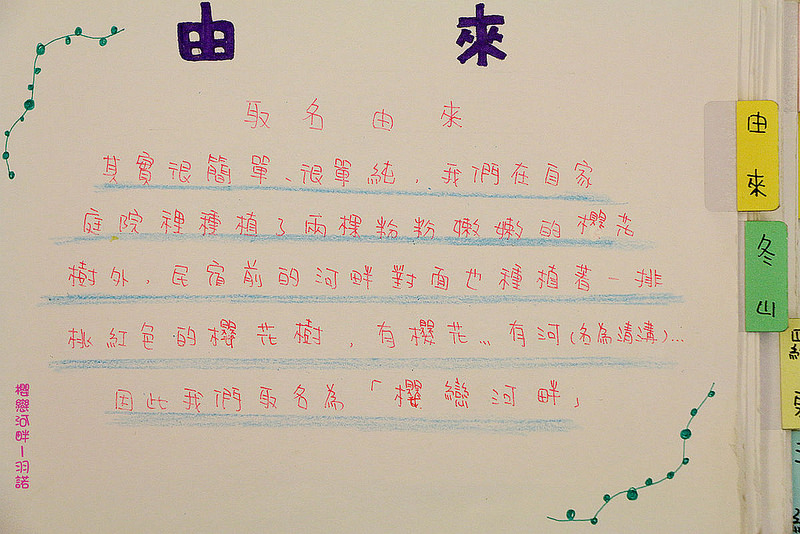 由來
取名由來
其實很簡單、很單純，我們在自家
庭院裡種植了兩棵粉粉嫩嫩的櫻花
樹外，民宿前的河畔對面也種植著一排
桃紅色的櫻花樹，有櫻花…有河(名為清溝)…
因此我們取名為「櫻戀河畔」
櫻戀河畔－羽諾
由來
冬山
羅東